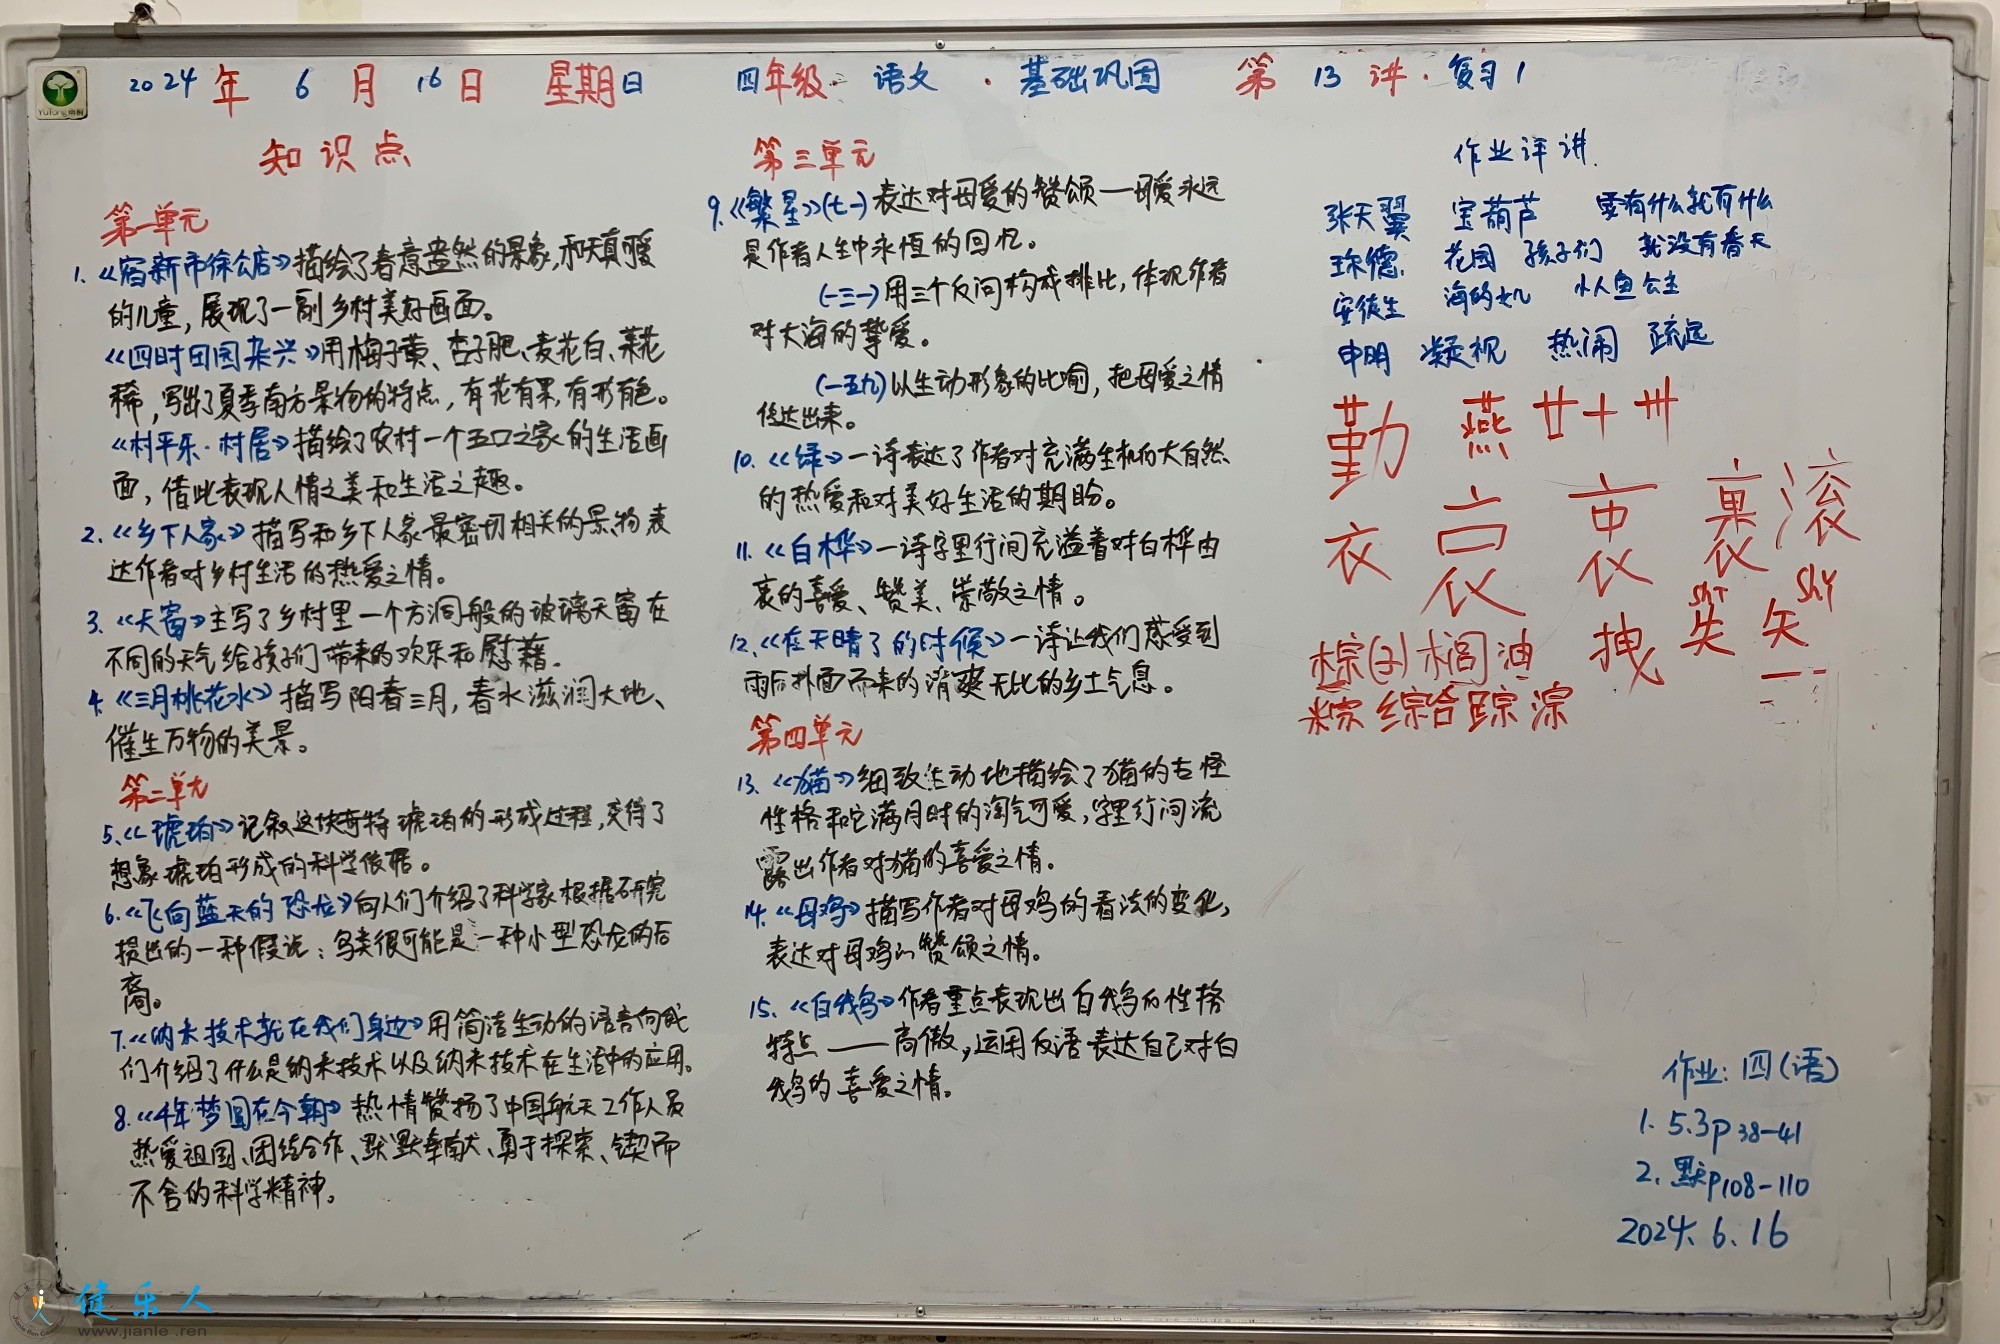 2024年6月16日 星期日 四年级·语文·基础巩固 第13讲·复习1
知识点
第一单元
1.《宿新市徐公店》描绘了春意盎然的景象,和天真可爱
的儿童,展现了一副乡村美好画面。
《四时田园杂兴》用梅子黄、杏子肥、麦花白、菜花
稀,写出了夏季南方景物的特点,有花有果,有形有色。
《村平乐·村居》描绘了农村一个五口之家的生活画
面,借此表现人情之美和生活之趣。
2.《乡下人家》描写和乡下人家最密切相关的景物表
达作者对乡村生活的热爱之情。
3.《天窗》主写了乡村里一个方洞般的玻璃天窗在
不同的天气给孩子们带来的欢乐和慰藉.
4.《三月桃花水》描写阳春三月,春水滋润大地、
催生万物的美景。
第二单元
5.《琥珀》记叙这块奇特琥珀的形成过程,交待了
想象琥珀形成的科学依据。
6.《飞向蓝天的恐龙》向人们介绍了科学家根据研究
提出的一种假说:鸟类很可能是一种小型恐龙的后
裔。
7.《纳米技术就在我们身边》用简洁生动的语言向我
们介绍了什么是纳米技术以及纳米技术在生活中的应用。
8.《千年梦圆在今朝》热情赞扬了中国航天工作人员
热爱祖国、团结合作、默默奉献、勇于探索、锲而
不舍的科学精神。
第三单元
9.《繁星》(七一)表达对母爱的赞颂—母爱永远
是作者人生中永恒的回忆。
(一三一)用三个反问构成排比,体现作者
对大海的挚爱。
(一五九)以生动形象的比喻,把母爱之情
传达出来。
10.《绿》一诗表达了作者对充满生机的大自然
的热爱和对美好生活的期盼。
11.《白桦》一诗字里行间充溢着对白桦由
衷的喜爱、赞美、崇敬之情。
12.《在天晴了的时候》一诗让我们感受到
雨后扑面而来的清爽无比的乡土气息。
第四单元
13.《猫》细致生动地描绘了猫的古怪
性格和它满月时的淘气可爱,字里行间流
露出作者对猫的喜爱之情。
14.《母鸡》描写作者对母鸡的看法的变化,
表达对母鸡的赞颂之情。
15.《白鹅》作者重点表现出白鹅的性格
特点——高傲,运用反语表达自己对白
鹅的喜爱之情。
作业评讲.
张天翼 宝葫芦 要有什么就有什么
王尔德. 花园 孩子们 就没有春天
安徒生 海的女儿 小人鱼公主
申明 凝视 热闹 疏远
勤 燕 廿 十 卅
衣 衷 裹 滚
棕(子)榈油 拽 失 矢
shī shǐ
粽 综合 踪 淙
作业:四(语)
1. 5.3 P38-41
2. 默P108-110
2024.6.16
Yutong
健乐人
www.jianle.ren